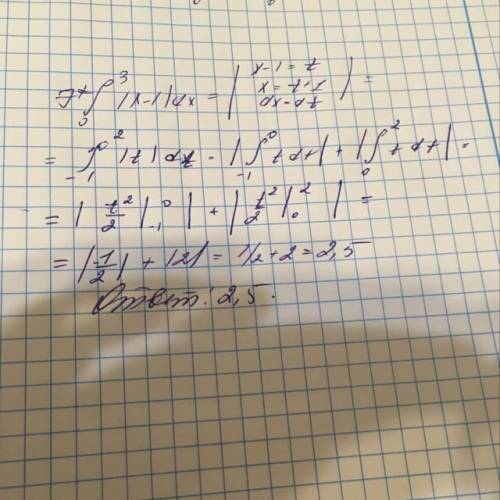 ∫₀³ |x-1|dx = | x-1=t x=1+t dx=dt | =
= ∫₋₁² |t| dt = |∫₋₁⁰ t dt| + |∫₀² t dt| =
= | t²/2 |₋₁⁰ | + | t²/2 |₀² | =
= |1/2| + |2| = 1/2 + 2 = 2,5
Ответ: 2,5.